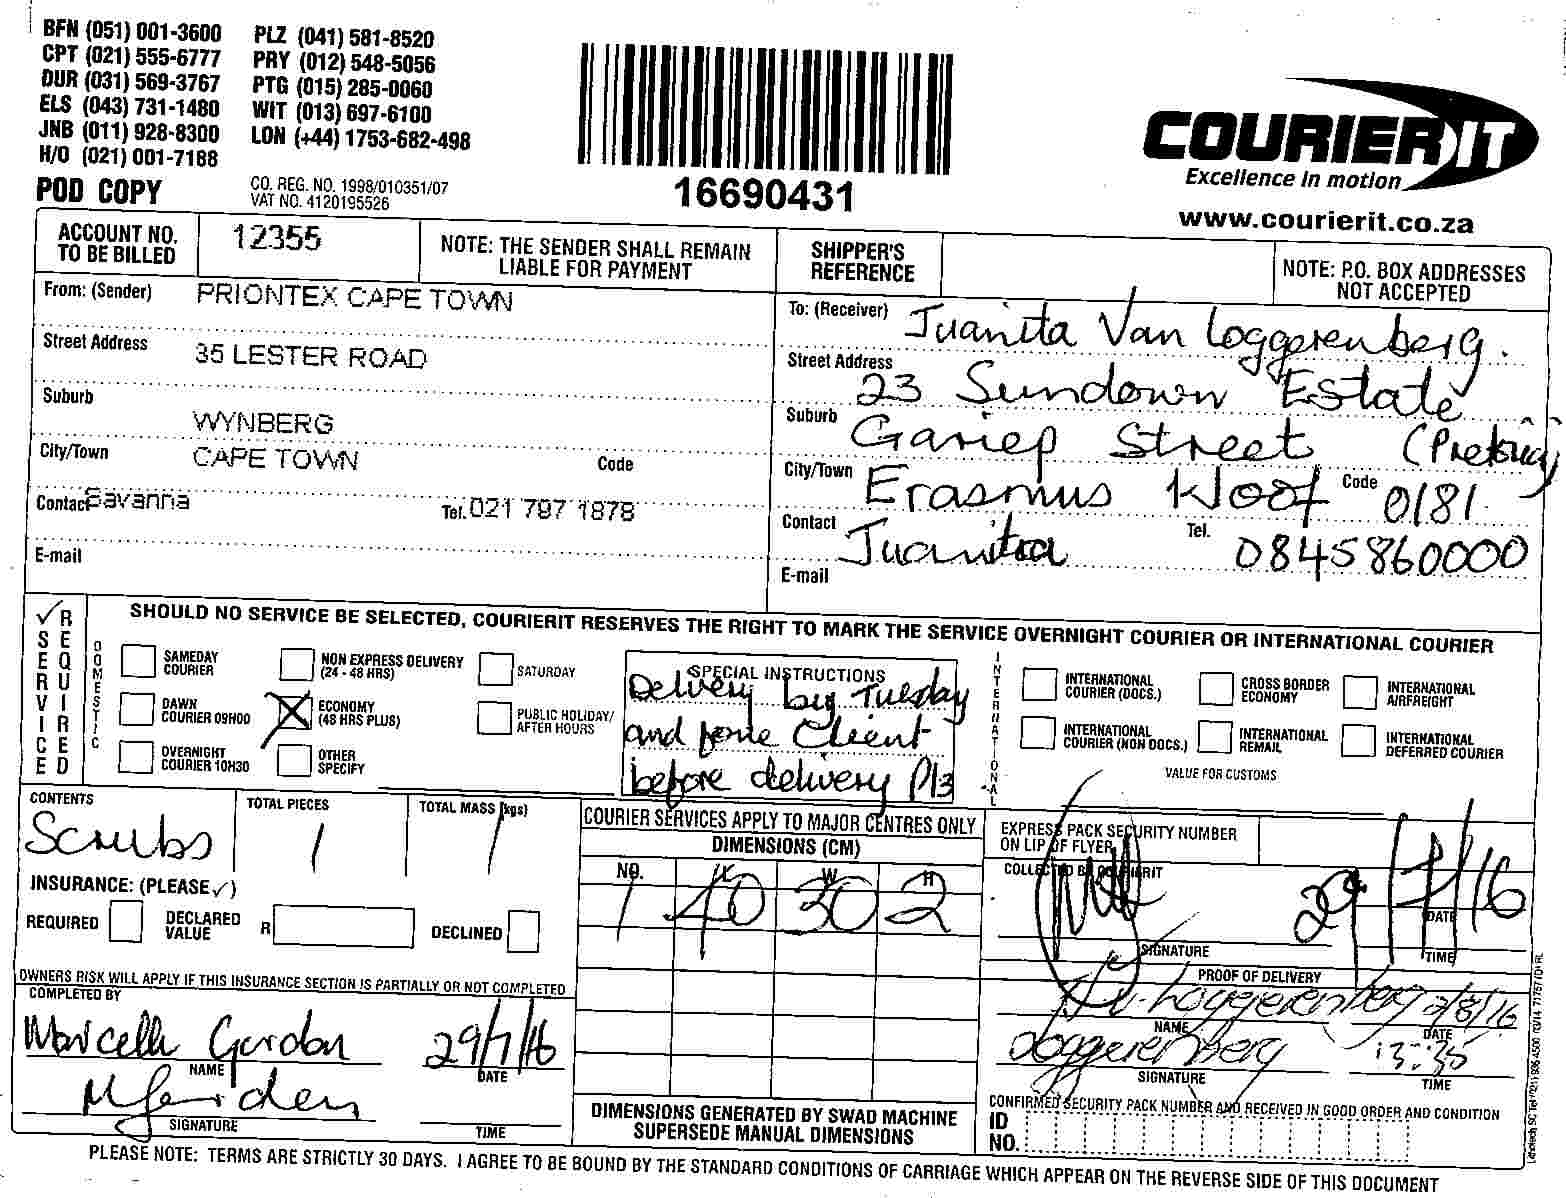 BFN (051) 001-3600 PLZ (041) 581-8520
CPT (021) 555-6777 PRY (012) 548-5056
DUR (031) 569-3767 PTG (015) 285-0060
ELS (043) 731-1480 WIT (013) 697-6100
JNB (011) 928-8300 LON (+44) 1753-682-498
H/O (021) 001-7188
POD COPY
CO. REG. NO. 1998/010351/07
VAT NO. 4120195526
16690431
COURIER IT
Excellence in motion
www.courierit.co.za
ACCOUNT NO.
TO BE BILLED
12355
NOTE: THE SENDER SHALL REMAIN
LIABLE FOR PAYMENT
SHIPPER'S
REFERENCE
NOTE: P.O. BOX ADDRESSES
NOT ACCEPTED
From: (Sender) PRIONTEX CAPE TOWN
Street Address 35 LESTER ROAD
Suburb WYNBERG
City/Town CAPE TOWN Code
Contact Savanna Tel. 021 797 1878
E-mail
To: (Receiver) Juanita Van Loggerenberg.
Street Address 23 Sundown Estate
Suburb Gariep Street (Pretoria)
City/Town Erasmus Kloof Code 0181
Contact Juanita Tel. 0845860000
E-mail
✓ SERVICE REQUIRED
SHOULD NO SERVICE BE SELECTED, COURIERIT RESERVES THE RIGHT TO MARK THE SERVICE OVERNIGHT COURIER OR INTERNATIONAL COURIER
DOMESTIC
SAMEDAY
COURIER
NON EXPRESS DELIVERY
(24 - 48 HRS)
SATURDAY
DAWN
COURIER 09H00
ECONOMY
(48 HRS PLUS)
PUBLIC HOLIDAY/
AFTER HOURS
OVERNIGHT
COURIER 10H30
OTHER
SPECIFY
SPECIAL INSTRUCTIONS
Delivery by Tuesday
and fone Client
before delivery Plz
INTERNATIONAL
INTERNATIONAL
COURIER (DOCS.)
CROSS BORDER
ECONOMY
INTERNATIONAL
AIRFREIGHT
INTERNATIONAL
COURIER (NON DOCS.)
INTERNATIONAL
REMAIL
INTERNATIONAL
DEFERRED COURIER
VALUE FOR CUSTOMS
CONTENTS
Scrubs
TOTAL PIECES
1
TOTAL MASS (kgs)
1
INSURANCE: (PLEASE ✓)
REQUIRED
DECLARED
VALUE
R
DECLINED
OWNERS RISK WILL APPLY IF THIS INSURANCE SECTION IS PARTIALLY OR NOT COMPLETED
COMPLETED BY
Marcelle Gordon 29/7/16
NAME DATE
M Gorden
SIGNATURE TIME
COURIER SERVICES APPLY TO MAJOR CENTRES ONLY
DIMENSIONS (CM)
NO. L W H
1 40 30 2
DIMENSIONS GENERATED BY SWAD MACHINE
SUPERSEDE MANUAL DIMENSIONS
EXPRESS PACK SECURITY NUMBER
ON LIP OF FLYER
COLLECTED BY COURIERIT
29/7/16
DATE
SIGNATURE TIME
PROOF OF DELIVERY
Loggerenberg 2/8/16
NAME DATE
Loggerenberg 13:35
SIGNATURE TIME
CONFIRMED SECURITY PACK NUMBER AND RECEIVED IN GOOD ORDER AND CONDITION
ID
NO.
PLEASE NOTE: TERMS ARE STRICTLY 30 DAYS. I AGREE TO BE BOUND BY THE STANDARD CONDITIONS OF CARRIAGE WHICH APPEAR ON THE REVERSE SIDE OF THIS DOCUMENT